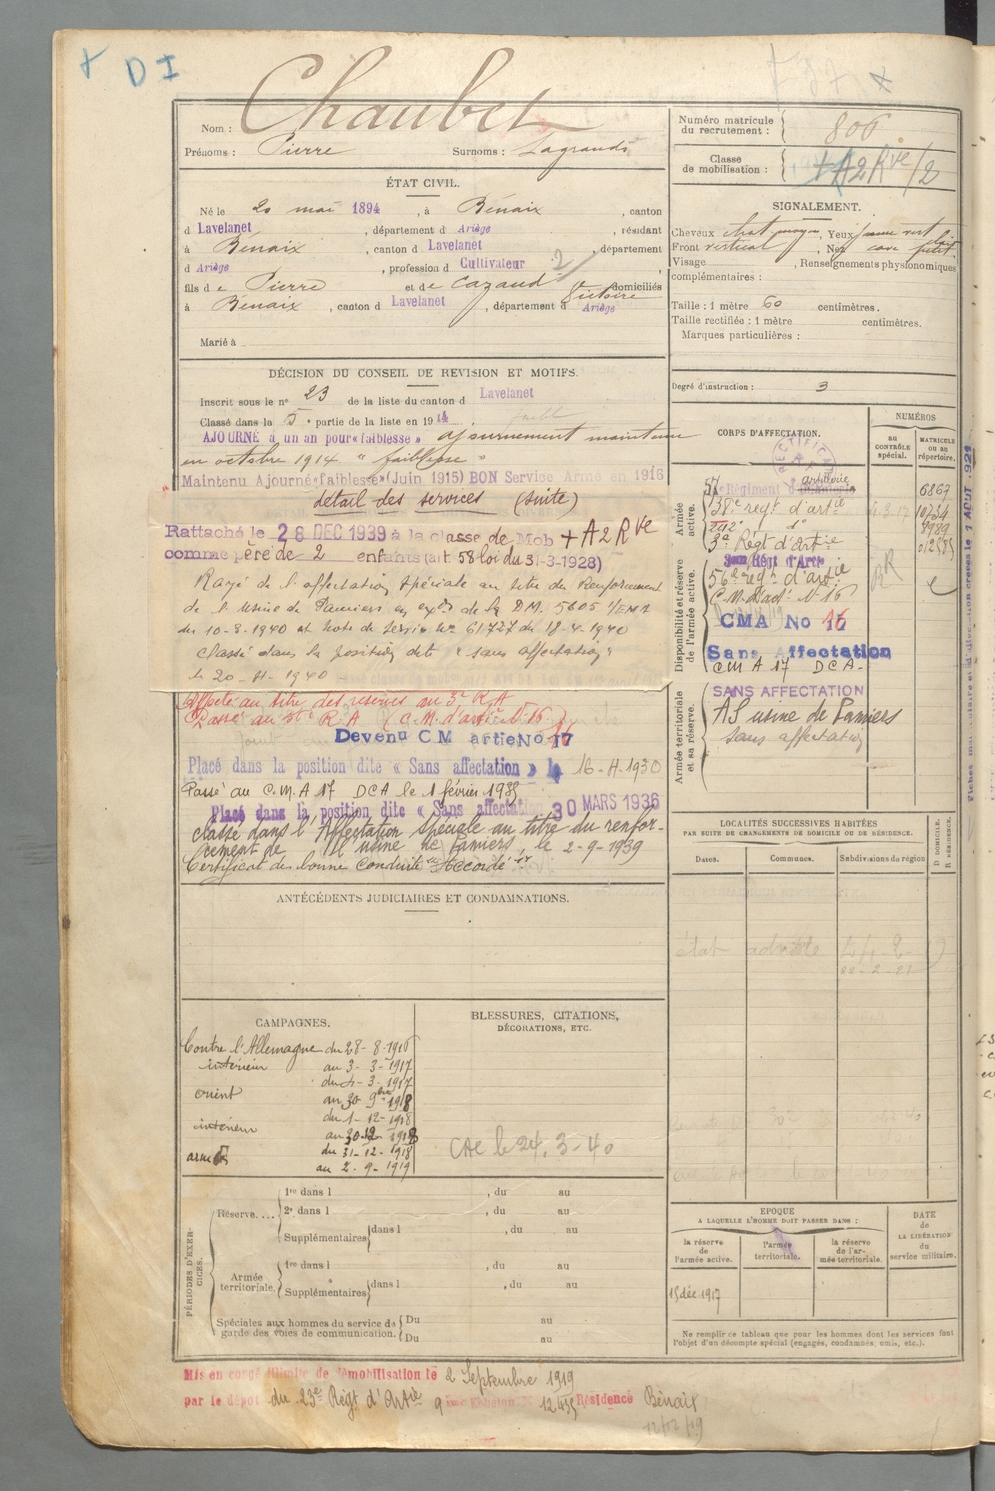 + D I
Nom : Chaubet
Prénoms : Pierre Surnoms : Lagrande
Numéro matricule
du recrutement : 806
Classe
de mobilisation : + A2 Rve/2
ÉTAT CIVIL.
Né le 20 mai 1894, à Bénaix, canton
d Lavelanet, département d Ariège, résidant
à Bénaix, canton d Lavelanet, département
d Ariège, profession d Cultivateur 2
fils de Pierre et de Cazaud Victoire domiciliés
à Bénaix, canton d Lavelanet, département d Ariège
Marié à
SIGNALEMENT.
Cheveux chat. moyen, Yeux jaune vert clair
Front vertical, Nez cave petit
Visage, Renseignements physionomiques
complémentaires :
Taille : 1 mètre 60 centimètres.
Taille rectifiée : 1 mètre centimètres.
Marques particulières :
Degré d'instruction : 3
DÉCISION DU CONSEIL DE REVISION ET MOTIFS.
Inscrit sous le n° 23 de la liste du canton d Lavelanet
Classé dans la 5e partie de la liste en 1914
AJOURNÉ à un an pour « faiblesse » ajournement maintenu
en octobre 1914. "faiblesse"
Maintenu Ajourné «faiblesse» (Juin 1915) BON Service Armé en 1916
détail des services (suite)
Rattaché le 28 DEC 1939 à la classe de Mob + A2 Rve
comme père de 2 enfants (art. 58 loi du 31-3-1928)
Rayé de l'affectation spéciale au titre du renforcement
de l'usine de Pamiers en exon de la D.M. 5605 1/EMA
du 10-8-1940 et note de service No 61.727 du 18-4-1940
Classé dans la position dite "sans affectation"
le 20-4-1940
Affecté au titre des réserves au 3e R.A
Passé au 56e R.A (C.M. d'artie No 16)
Devenu C M artie No 17
Placé dans la position dite « Sans affectation » le 16-4-1930
Passé au C.M.A 17 DCA le 1 février 1935
Placé dans la position dite « Sans affectation 30 MARS 1936
classé dans l'Affectation spéciale au titre du renfor-
cement de l'usine de Pamiers, le 2-9-1939
Certificat de bonne conduite "Accordé"
CORPS D'AFFECTATION.
NUMÉROS
au
CONTRÔLE
spécial.
MATRICULE
ou au
répertoire.
RECTIFICATION
Armée
active.
57e Régiment d'artillerie 6867
38e regt d'artie 4.3.17 10734
212e do 9989
3e Régt d'Artie 012585
Disponibilité et réserve
de l'armée active.
56e régt d'artie RR
C.M. d'artie No 16
CMA No 16
Sans Affectation
CMA 17 DCA-
Armée territoriale
et sa réserve.
SANS AFFECTATION
AS usine de Pamiers
sans affectation
LOCALITÉS SUCCESSIVES HABITÉES
PAR SUITE DE CHANGEMENTS DE DOMICILE OU DE RÉSIDENCE.
Dates. Communes. Subdivisions de région
D. DOMICILE.
R. RÉSIDENCE.
ANTÉCÉDENTS JUDICIAIRES ET CONDAMNATIONS.
22-2-21
CAMPAGNES.
Contre l'Allemagne du 28-8-1916
intérieur au 3-3-1917
du 4-3-1917
orient au 30 9bre 1918
du 1-12-1918
intérieur au 30-12-1918
armées du 31-12-1918
au 2-9-1919
BLESSURES, CITATIONS,
DÉCORATIONS, ETC.
CAC le 24.3-40
PÉRIODES D'EXER-
CICES.
Réserve.... 1re dans l, du au
2e dans l, du au
Supplémentaires dans l, du au
Armée
territoriale. 1re dans l, du au
Supplémentaires dans l, du au
Spéciales aux hommes du service de
garde des voies de communication. Du au
Du au
EPOQUE
A LAQUELLE L'HOMME DOIT PASSER DANS :
la réserve
de
l'armée active.
l'armée
territoriale.
la réserve
de l'ar-
mée territoriale.
DATE
de
LA LIBÉRATION
du
service militaire.
15 déc 1917
Ne remplir ce tableau que pour les hommes dont les services font
l'objet d'un décompte spécial (engagés, condamnés, omis, etc.).
Mis en congé illimité de démobilisation le 2 Septembre 1919
par le dépôt du 23e Régt d'Artie 9 ème Echelon No 12435 Résidence Bénaix
12/12/19